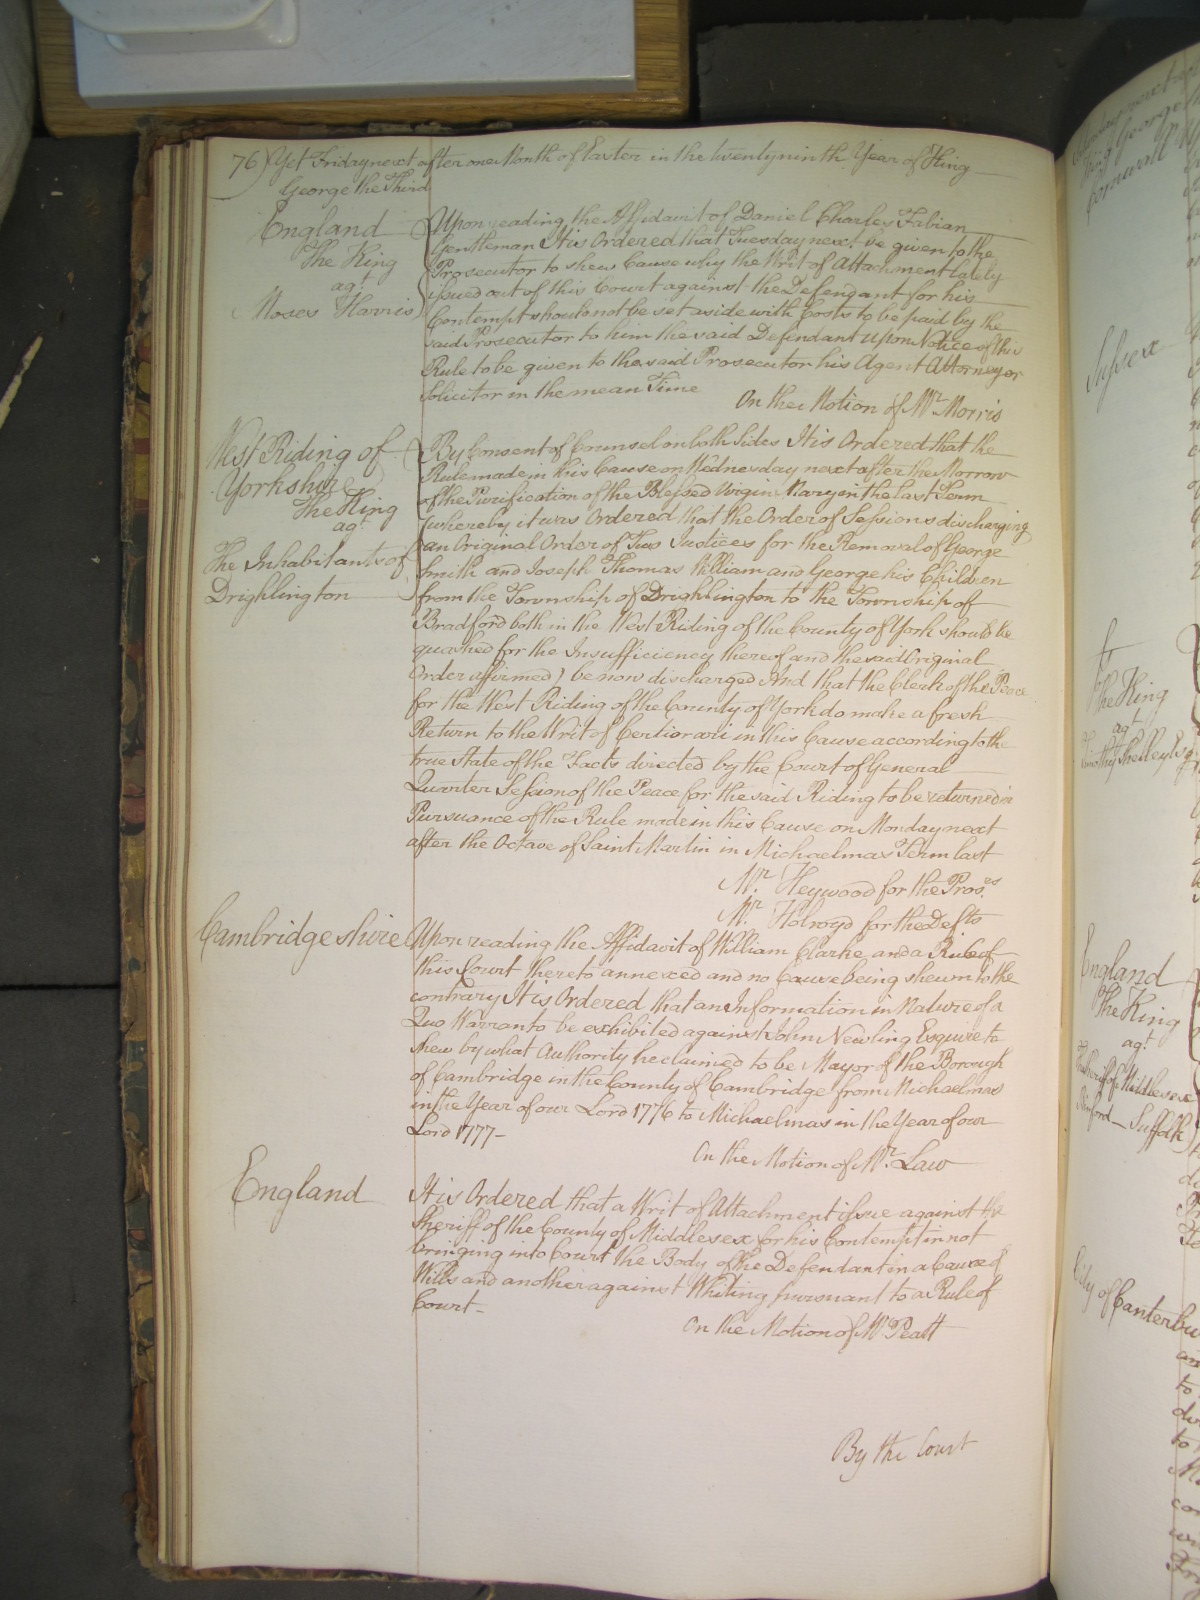 76) Yet Friday next after one Month of Easter in the twenty ninth Year of King
George the Third
England
The King
agt
Moses Harris
Upon reading the Affidavit of Daniel Charles Fabian
Gentleman It is Ordered that Tuesday next be given to the
Prosecutor to shew Cause why the Writ of Attachment lately
issued out of this Court against the Defendant for his
Contempt should not be set aside with Costs to be paid by the
said Prosecutor to him the said Defendant upon Notice of this
Rule to be given to the said Prosecutor his Agent Attorney or
Solicitor in the mean Time
On the Motion of Mr. Morris
West Riding of
Yorkshire
The King
agt
The Inhabitants of
Drighlington
By Consent of Counsel on both Sides It is Ordered that the
Rule made in this Cause on Wednesday next after the Morrow
of the Purification of the Blessed Virgin Mary in the last Term
(whereby it was Ordered that the Order of Sessions discharging
an Original Order of Two Justices for the Removal of George
Smith and Joseph Thomas William and George his Children
from the Township of Drighlington to the Township of
Bradford both in the West Riding of the County of York should be
quashed for the Insufficiency thereof and the said Original
Order affirmed) be now discharged And that the Clerk of the Peace
for the West Riding of the County of York do make a fresh
Return to the Writ of Certiorari in this Cause according to the
true State of the Facts directed by the Court of General
Quarter Session of the Peace for the said Riding to be returned in
Pursuance of the Rule made in this Cause on Monday next
after the Octave of Saint Martin in Michaelmas Term last
Mr. Heywood for the Pros.rs
Mr. Holroyd for the Defts
Cambridgeshire
Upon reading the Affidavit of William Clarke and a Rule of
this Court thereto annexed and no Cause being shewn to the
contrary It is Ordered that an Information in Nature of a
Quo Warranto be exhibited against John Newling Esquire to
shew by what Authority he claimed to be Mayor of the Borough
of Cambridge in the County of Cambridge from Michaelmas
in the Year of our Lord 1776 to Michaelmas in the Year of our
Lord 1777-
On the Motion of Mr. Law
England
It is Ordered that a Writ of Attachment issue against the
Sheriff of the County of Middlesex for his Contempt in not
bringing into Court the Body of the Defendant in a Cause of
Wills and another against Whiting pursuant to a Rule of
Court-
On the Motion of Mr Peatt
By the Court
Sussex
The King
agt
England
The King
agt
Suffolk
City of Canterbu